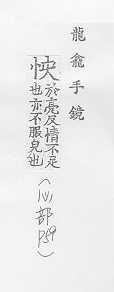 龍龕手鏡
怏 於亮反情不足
也亦不服皃也
(心部
P59)